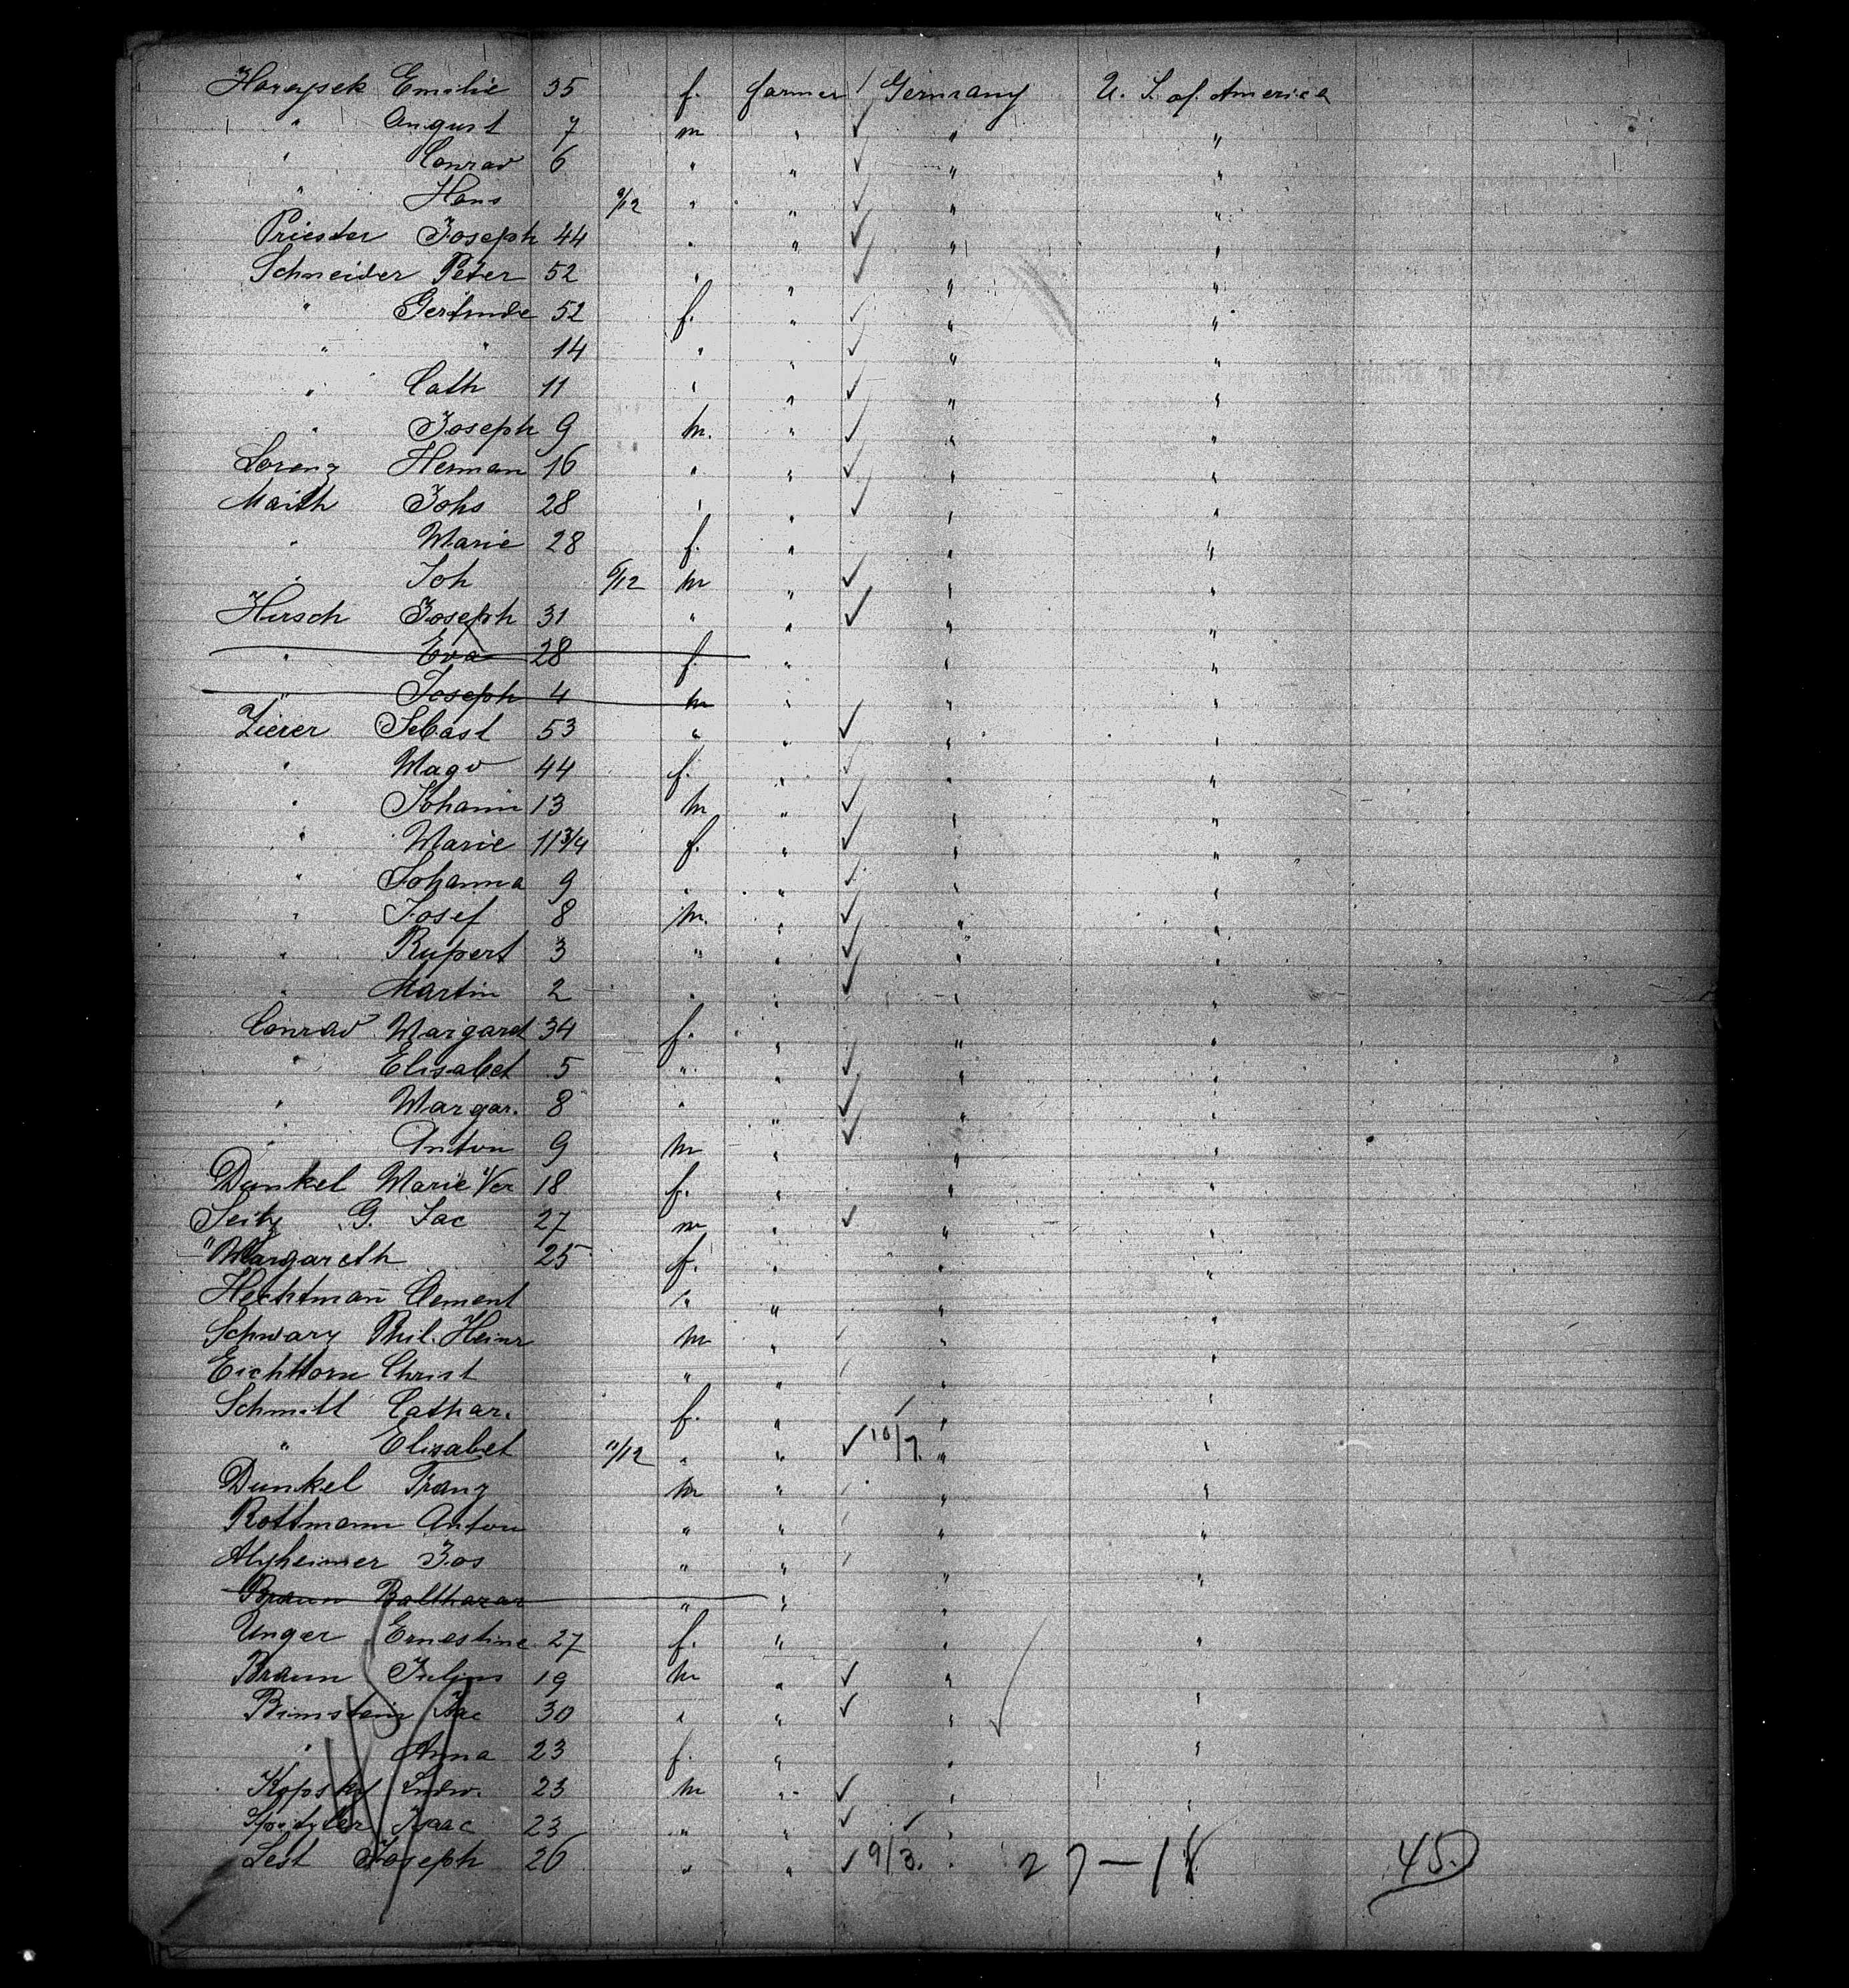 Emilie 35 f. farmer / Germany U. S. of America
" August 7 m " ✓ " "
" Conrad 6 " " ✓ " "
" Hans 9/12 " " ✓ " "
Priester Joseph 44 " " ✓ " "
Schneider Peter 52 " " ✓ " "
" Gertrude 52 f. " ✓ " "
" " 14 " " ✓ " "
" Cath 11 " " ✓ " "
" Joseph 9 m. " ✓ " "
Lorenz Herman 16 " " ✓ " "
Maith Johs 28 " " ✓ " "
" Marie 28 f. " " "
" Joh 6/12 m " ✓ " "
Hirsch Joseph 31 " " ✓ " "
" Eva 28 f. " " "
" Joseph 4 m " " "
Zierer Sebast 53 " " ✓ " "
" Magd 44 f. " ✓ " "
" Johann 13 m " ✓ " "
" Marie 11 3/4 f. " ✓ " "
" Johanna 9 " " ✓ " "
" Josef 8 m. " ✓ " "
" Rupert 3 " " ✓ " "
" Martin 2 " " ✓ " "
Conrad Margaret 34 f. " " "
" Elisabet 5 " " ✓ " "
" Margar. 8 " " ✓ " "
" Anton 9 m " ✓ " "
Dunkel Marie Ver 18 f. " " "
Seitz G. Jac 27 m " ✓ " "
" Margareth 25 f. " " "
Hechtmañ Clement " " " "
Schwarz Phil. Heinr m " / " "
Eichhorn Christ " " / " "
Schmitt Cathar. f. " / " "
" Elisabet 11/12 " " ✓ 10/7. " "
Dunkel Franz m " / " "
Rottmann Anton " " / " "
Alzheimer Jos " " / " "
Braun Balthasar " " " "
Unger Ernestine 27 f. " " "
Braun Julius 19 m " ✓ "
Birnstein Isac 30 " " ✓ " "
" Anna 23 f. " " "
Kopsky Ludw. 23 m " ✓ " "
Isaac 23 " " ✓ "
Lest Joseph 26 " " ✓ 9/3. " 27 - 18 45